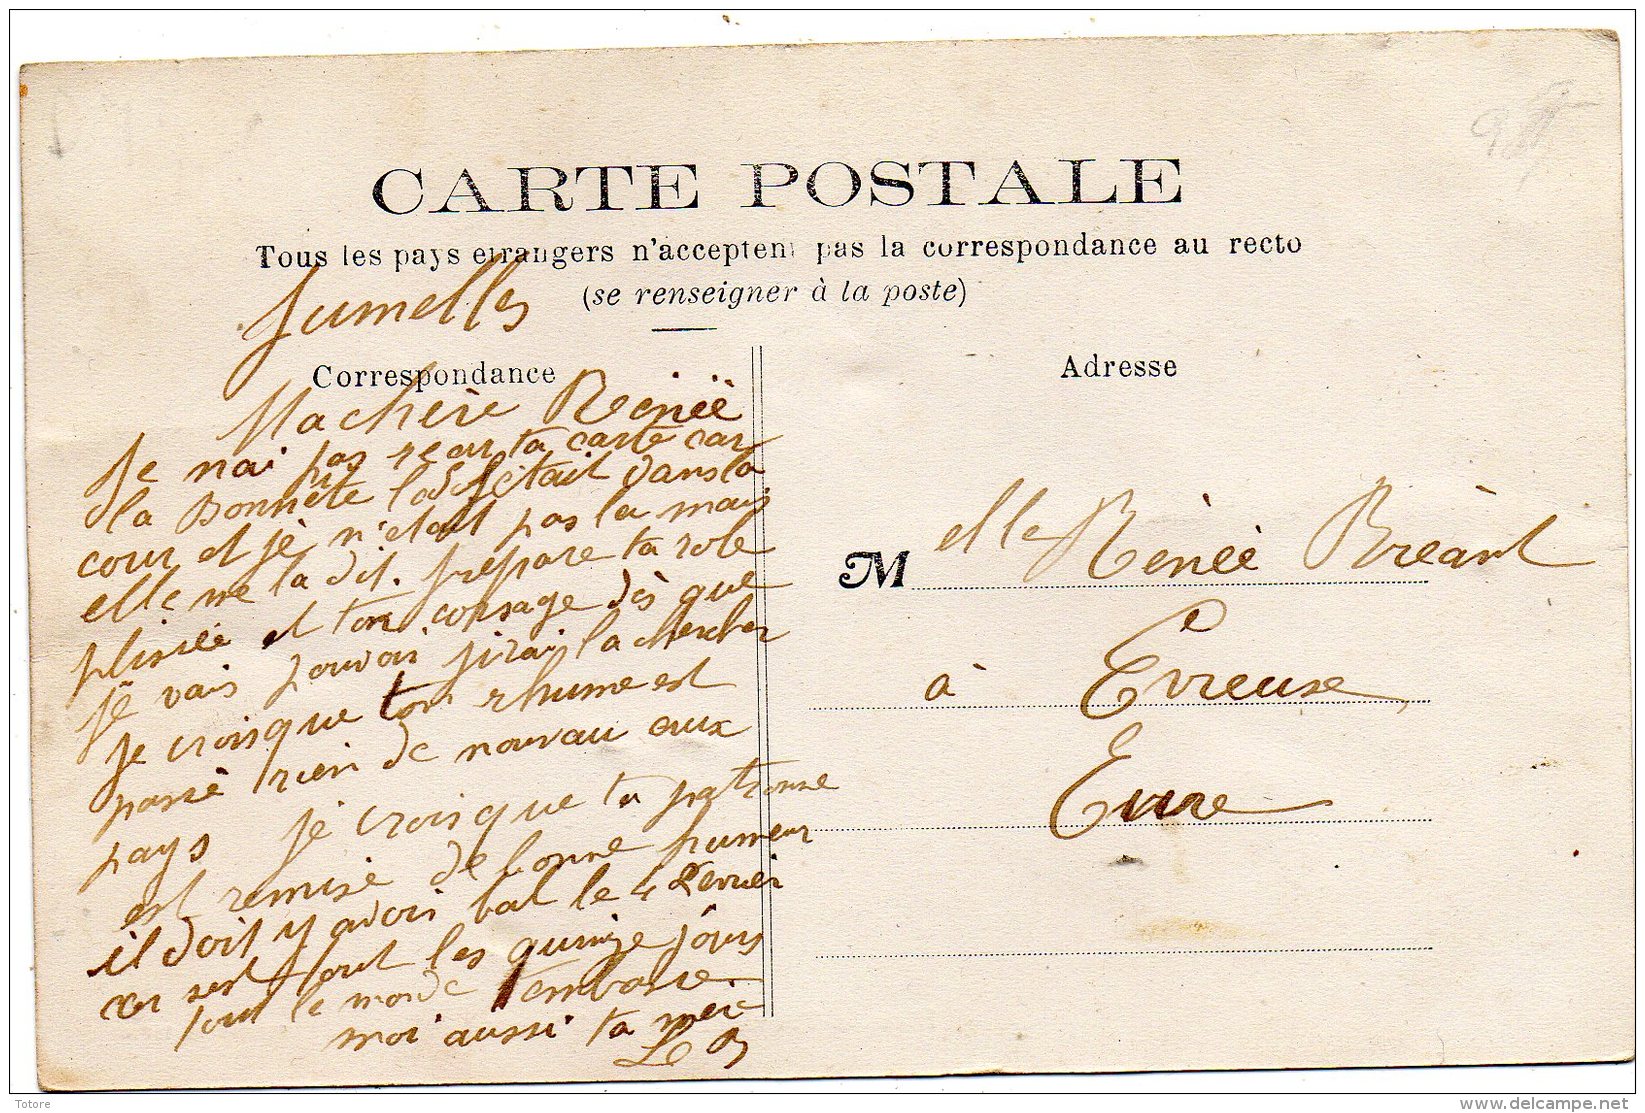 CARTE POSTALE
Tous les pays étrangers n'acceptent pas la correspondance au recto
(se renseigner à la poste)
Jumelles
Correspondance
Adresse
Ma chère Renèè
Je nai pas reçu ta carte car
la Bonnète était dans la
cour et jè n'etait pas la mais
elle me la dit. prépare ta robe
plissèè et ton corsage dès que
je vais pouvoir jirai la chercher
je crois que ton rhume est
passè rien de nouvau aux
pays je crois que ta patronne
est remise de bonne humeur
il doit y avoir bal le 4 Fevrier
car sest tout les quinze jours
tout le monde t'embrasse
moi aussi ta mère
L B
M elle Renèè Breant
à Evreuse
Eure
Totore
delcampe.net